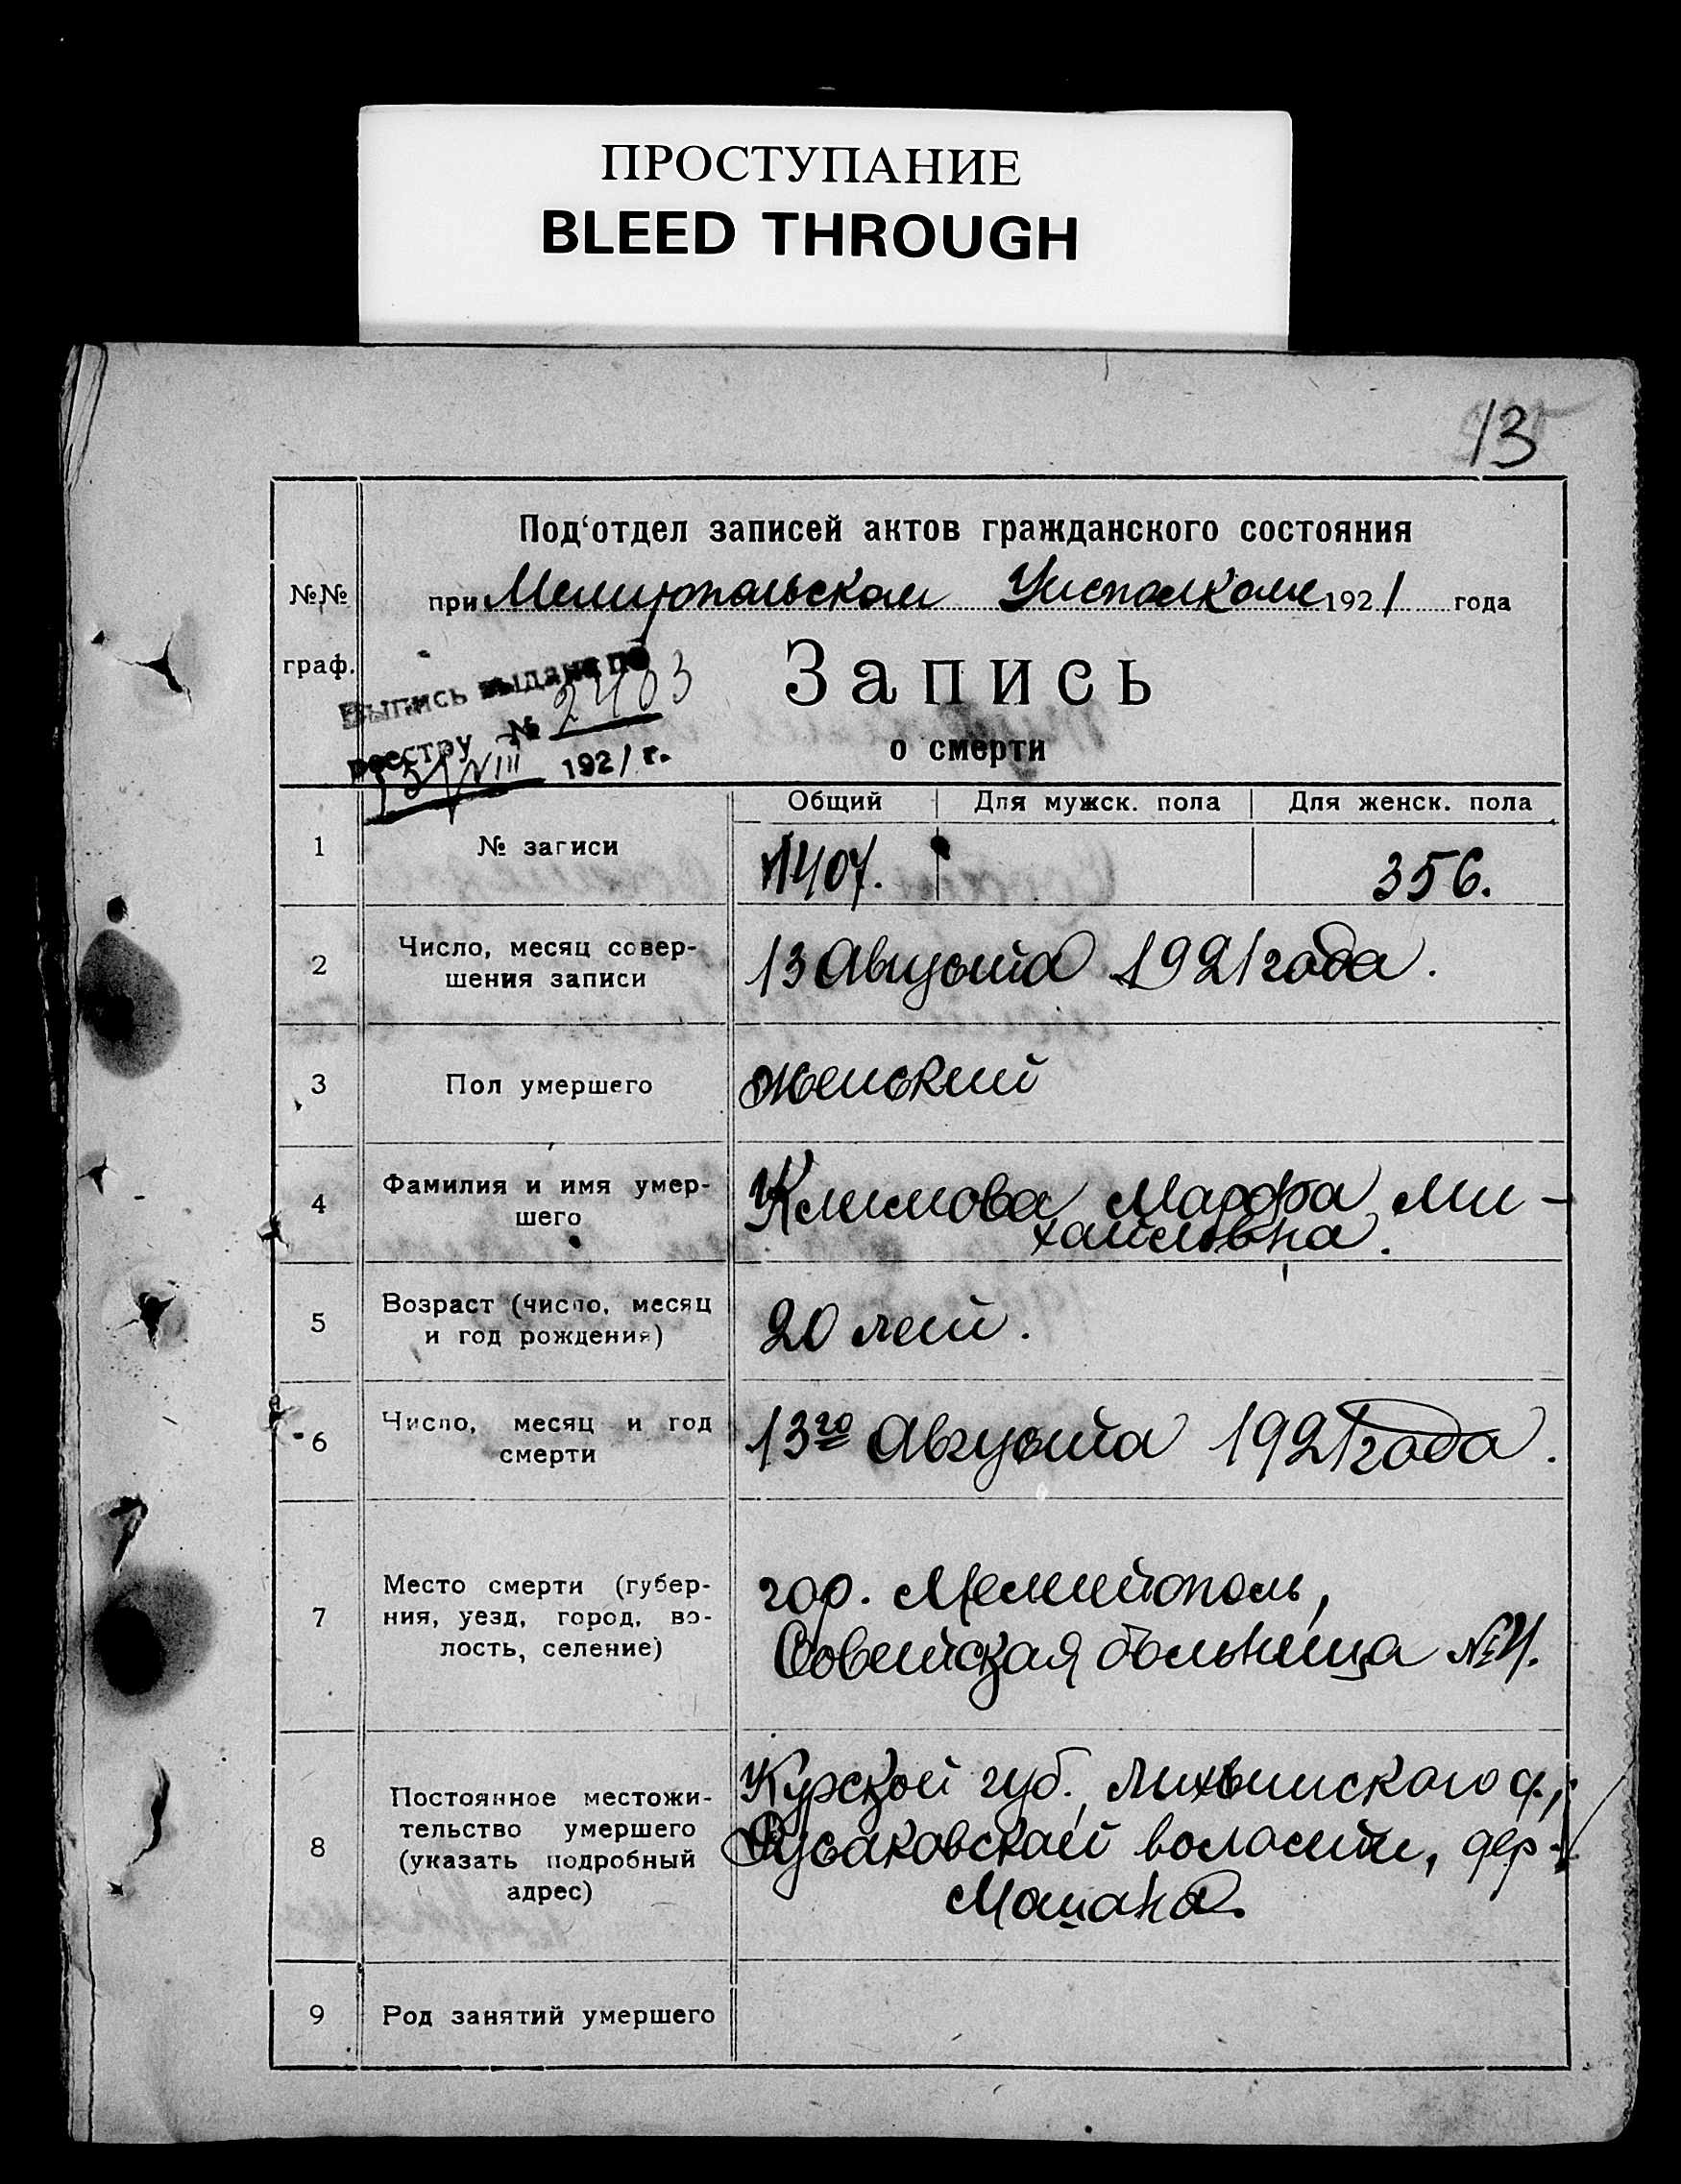 ПРОСТУПАНИЕ
BLEED THROUGH
13
Под‘отдел записей актов гражданского состояния
№№ при Мелитопольском Уисполкоме 1921 года
граф.
Выпись выдана по
реестру № 2403
13/VIII 1921 г.
Запись
о смерти
Общий Для мужск. пола Для женск. пола
1 № записи 1407. 356.
2 Число, месяц совер-
шения записи 13 Августа 1921 года.
3 Пол умершего женский
4 Фамилия и имя умер-
шего Климова Марфа Ми-
хайловна.
5 Возраст (число, месяц
и год рождения) 20 лет.
6 Число, месяц и год
смерти 13го Августа 1921 года.
7 Место смерти (губер-
ния, уезд, город, во-
лость, селение) гор. Мелитополь,
Советская больница №
8 Постоянное местожи-
тельство умершего
(указать подробный
адрес) Курской губ., Лихвинского
волости, дер.
9 Род занятий умершего